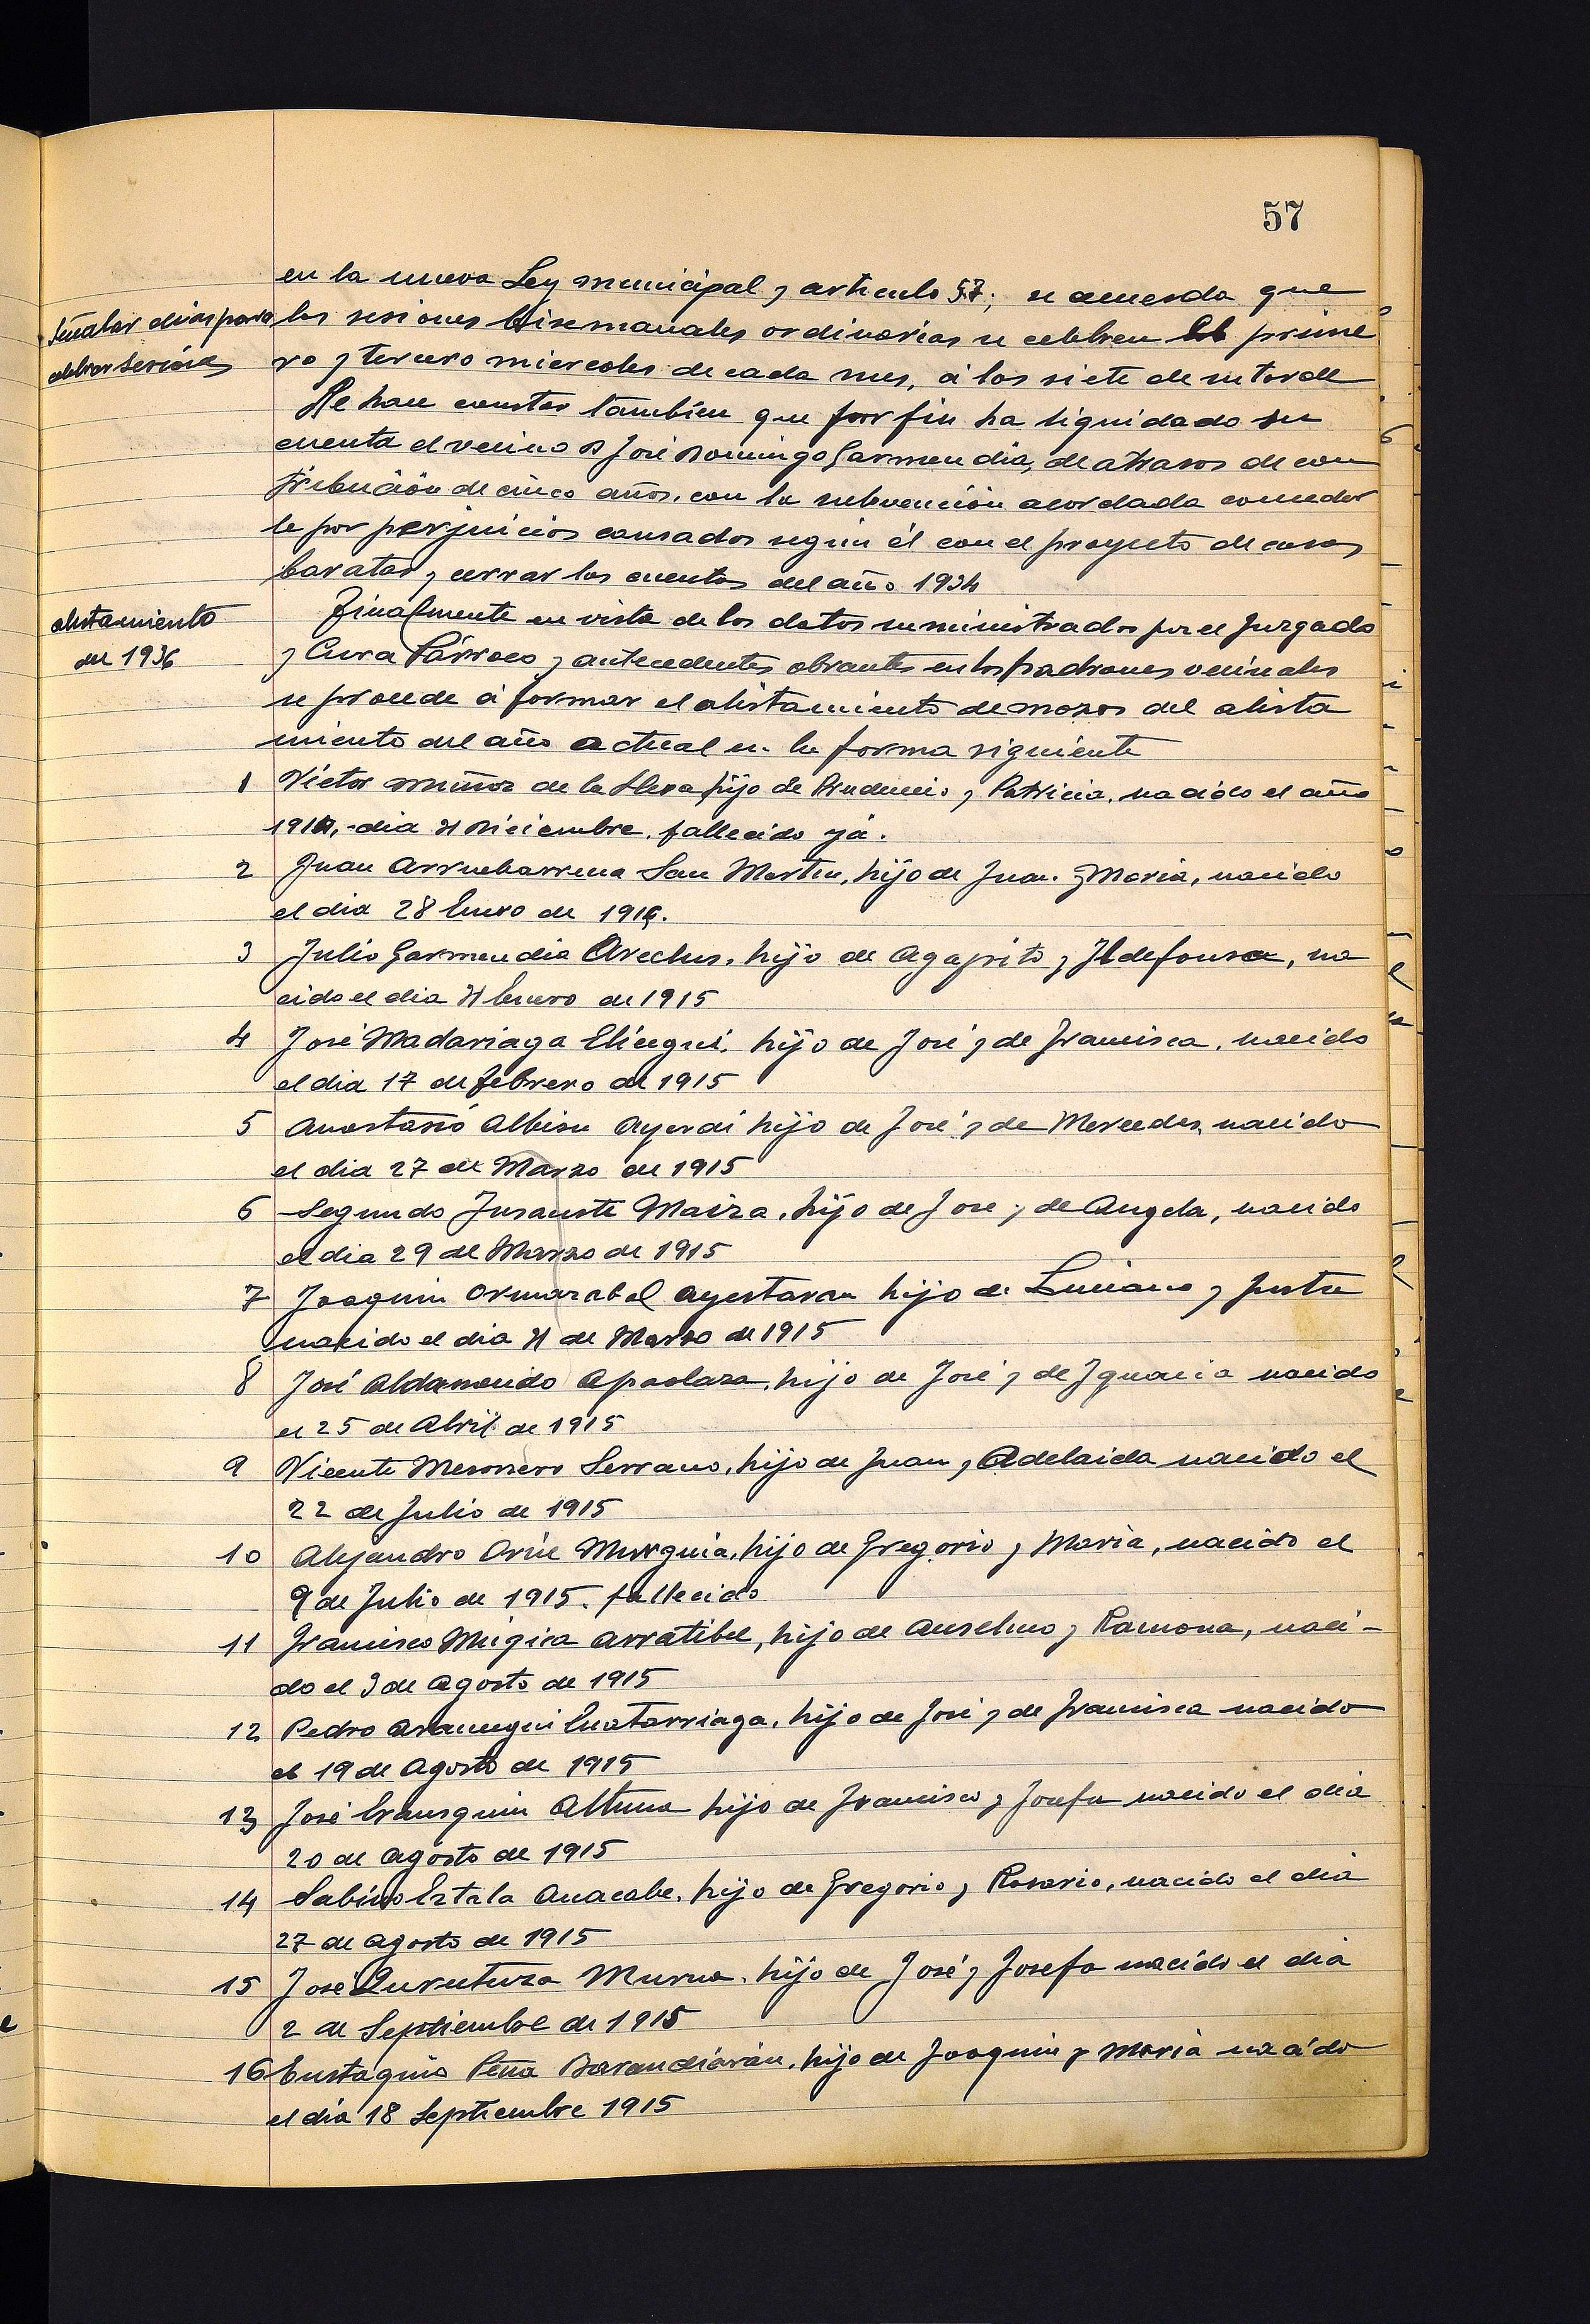 57
en la nueva Ley municipal y articulo 57; se acuerda que
Señalar dias para
las sesiones bisemanales ordinarias se celebren el prime
celebrar sesiones
ro y tercero miercoles de cada mes, á las siete de su tarde
Se hace constar también que por fin ha liquidado su
cuenta el vecino D José Domingo Garmendia, de atrasos de con
tribución de cinco años, con la subvención acordada conceder
le por perjuicios causados según él con el proyecto de casas
baratas y cerrar las cuentas del año 1934
alistamiento
del 1936
Finalmente en vista de los datos suministrados por el Juzgado
y Cura Párroco y antecedentes obrantes en los padrones vecinales
se procede á formar el alistamiento de mozos del alista
miento del año actual en la forma siguiente
1 Victor Muñoz de la hijo de Prudencio y Patricia, nacido el año
dia 31 Diciembre, fallecido yá.
2 Juan Arruebarrena San Martin, hijo de Juan y Maria, nacido
el dia 28 Enero de
3 Julio Garmendia hijo de Agapito y Ildefonsa, na
cido el dia 31 Enero de 1915
4 José Madariaga Elicegui, hijo de José y de Francisca, nacido
el dia 17 de febrero de 1915
5 Anastasio Albisu Ayerdi hijo de José y de Mercedes, nacido
el dia 27 de Marzo de 1915
6 Segundo Insausti Maiza, hijo de Jose y de Angela, nacido
el dia 29 de Marzo de 1915
7 Joaquin Ormazabal Ayestaran hijo de Luciano y Justa
nacido el dia 31 de Marzo de 1915
8 José Aldanondo Apaolaza, hijo de José y de Ignacia nacido
el 25 de Abril de 1915
9 Vicente Mesonero Serrano, hijo de Juan y Adelaida nacido el
22 de Julio de 1915
10 Alejandro Murguia, hijo de Gregorio y Maria, nacido el
9 de Julio de 1915. fallecido
11 Francisco Múgica Arratibel, hijo de Anselmo y Ramona, naci-
do el 3 de Agosto de 1915
12 Pedro Aramegui hijo de José y de Francisca nacido
el 19 de Agosto de 1915
13 José Erausquin Altuna hijo de Francisco y Josefa nacido el dia
20 de Agosto de 1915
14 Sabino Anacabe, hijo de Gregorio y Rosario, nacido el dia
27 de Agosto de 1915
15 José Murua, hijo de José y Josefa nacido el dia
2 de Septiembre de 1915
16 Eustaquio Peña Barandiarán, hijo de Joaquin y Maria nacido
el dia 18 Septiembre 1915